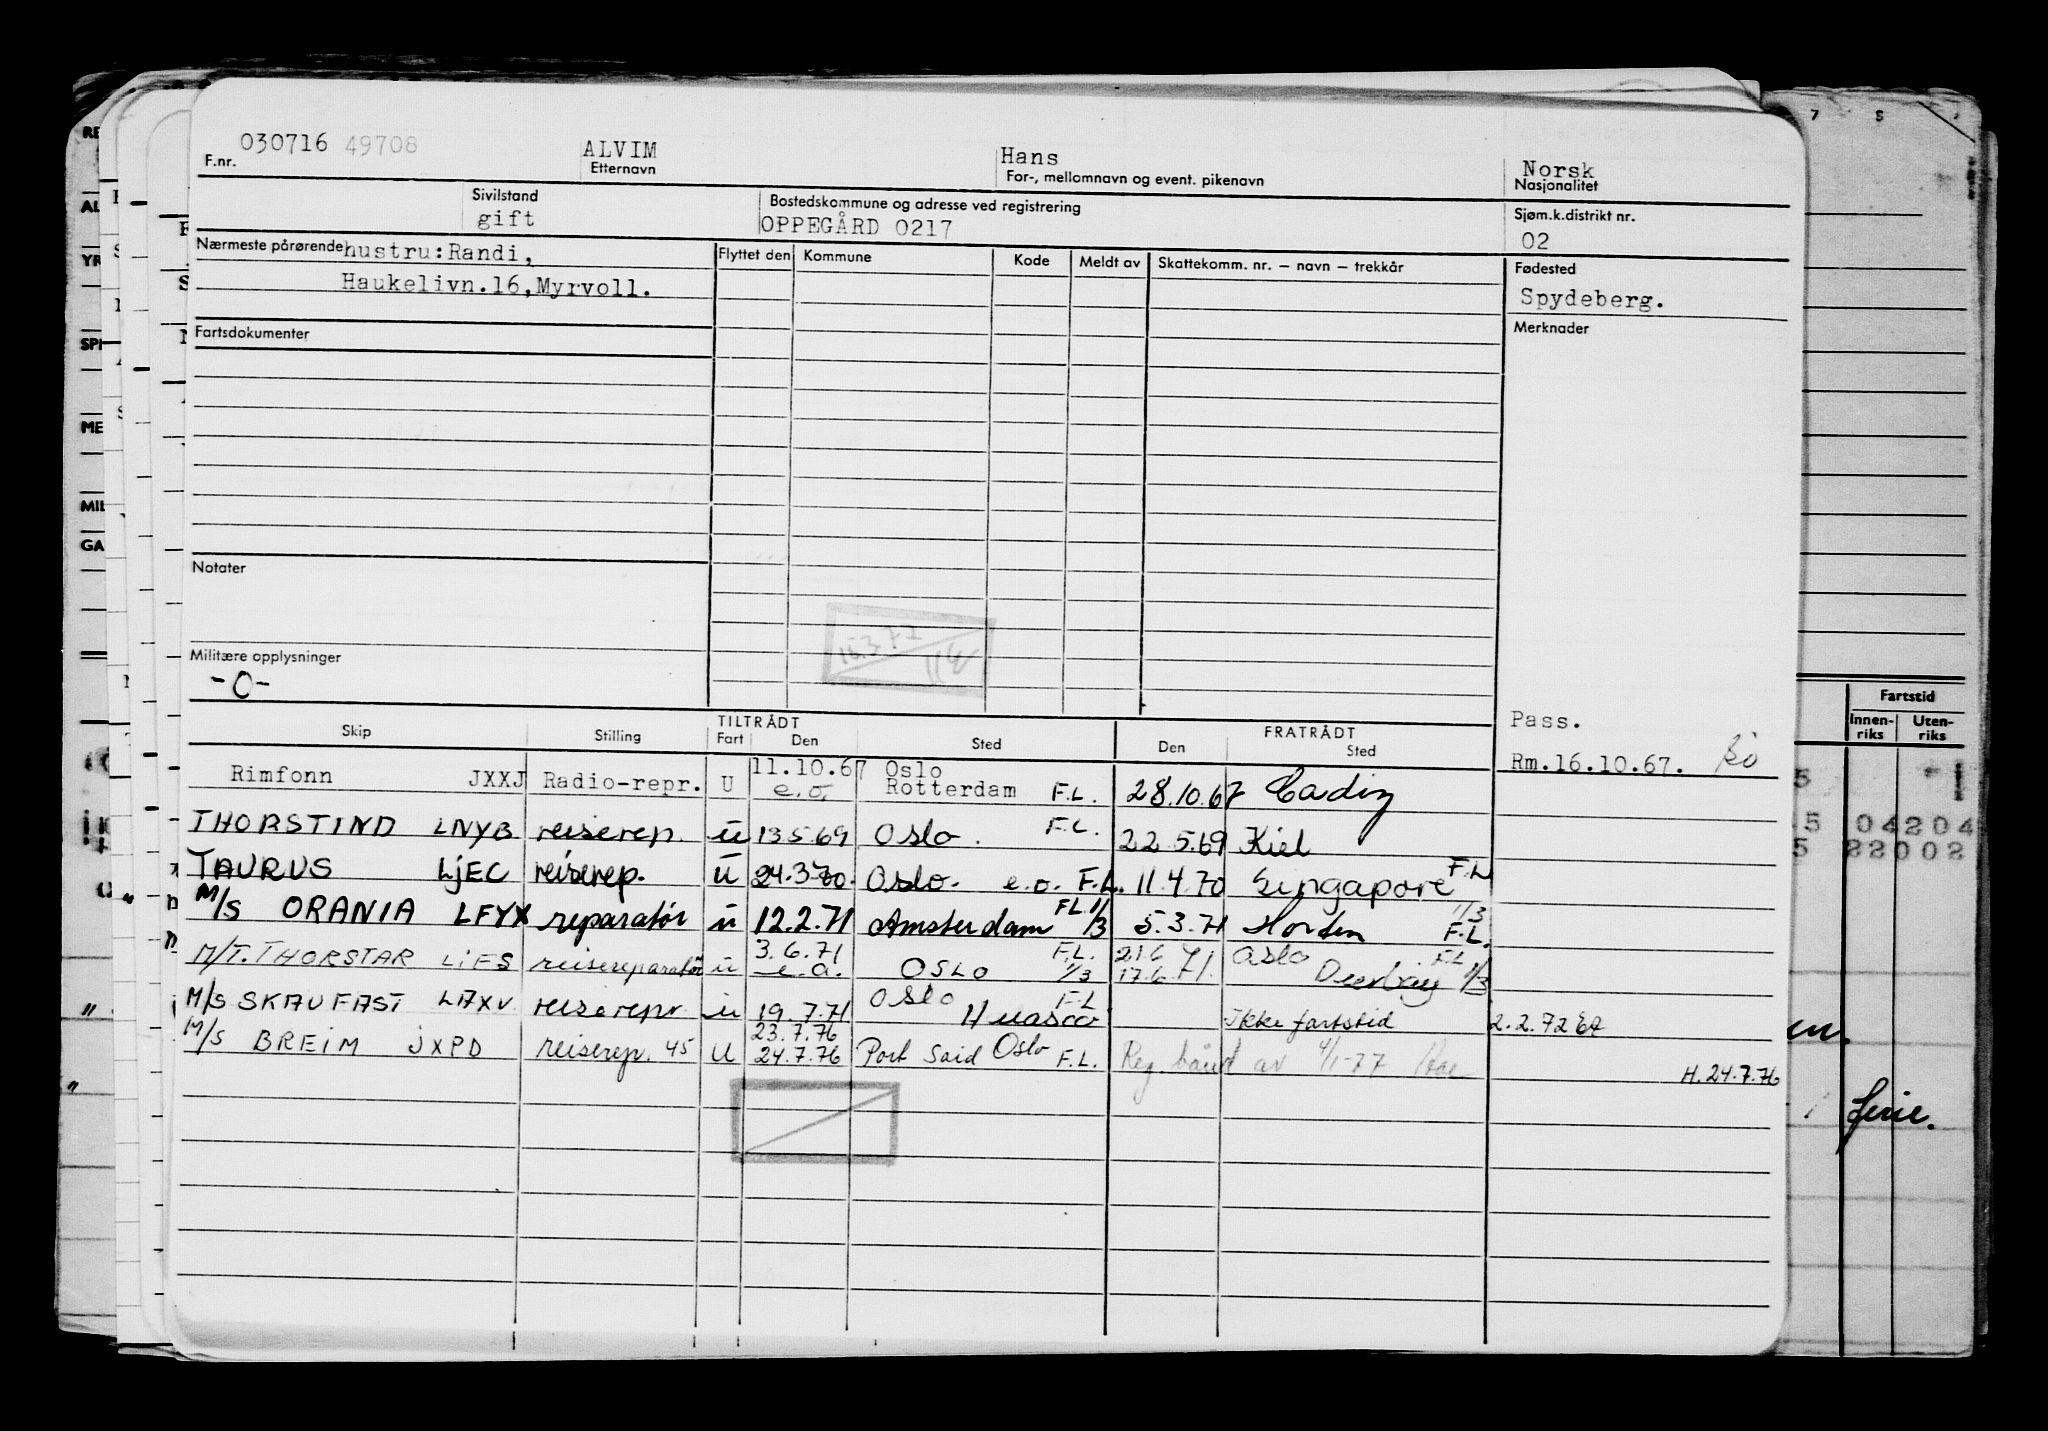 030716 49708 ALVIM Hans Norsk
F.nr. Etternavn For-, mellomnavn og event. pikenavn Nasjonalitet
Sivilstand Bostedskommune og adresse ved registrering Sjøm.k.distrikt nr.
gift OPPEGÅRD 0217 02
Nærmeste pårørende hustru: Randi, Flyttet den Kommune Kode Meldt av Skattekomm. nr. – navn – trekkår Fødested
Haukelivn.16,Myrvoll. Spydeberg.
Fartsdokumenter Merknader
Notater
15.3.72
Militære opplysninger
-0-
TILTRÅDT FRATRÅDT Pass.
Skip Stilling Fart Den Sted Den Sted
Rm.16.10.67.
11.10.67 Oslo
Rimfonn JXXJ Radio-repr. U e.o. Rotterdam F.L. 28.10.67 Cadiz
THORSTIND LNYB reiserep. u 13.5.69 Oslo. F.L. 22.5.69 Kiel
TAURUS LJEC reiserep. u 24.3.70. Oslo. e.o. F.L. 11.4.70 Singapore F.L.
M/S ORANIA LFYX reparatør u 12.2.71 Amsterdam F.L 1/3 5.3.71 Horten 1/3 F.L.
3.6.71 F.L. 21.6 Oslo F.L.
M/T. THORSTAR LIFS reisereparatør u e.o. OSLO 1/3 17.6.71. 1/3
Oslo F.L
M/S SKAUFAST LAXV reiserepr. u 19.7.71 Huasco Ikke fartstid 2.2.72
23.7.76 Oslo
M/S BREIM JXPD reiserep. 45 U 24.7.76 Port Said F.L. Reg. av 4/1-77
H.24.7.76
Fartstid
Innen-riks Uten-riks
04204
22002
ferie.